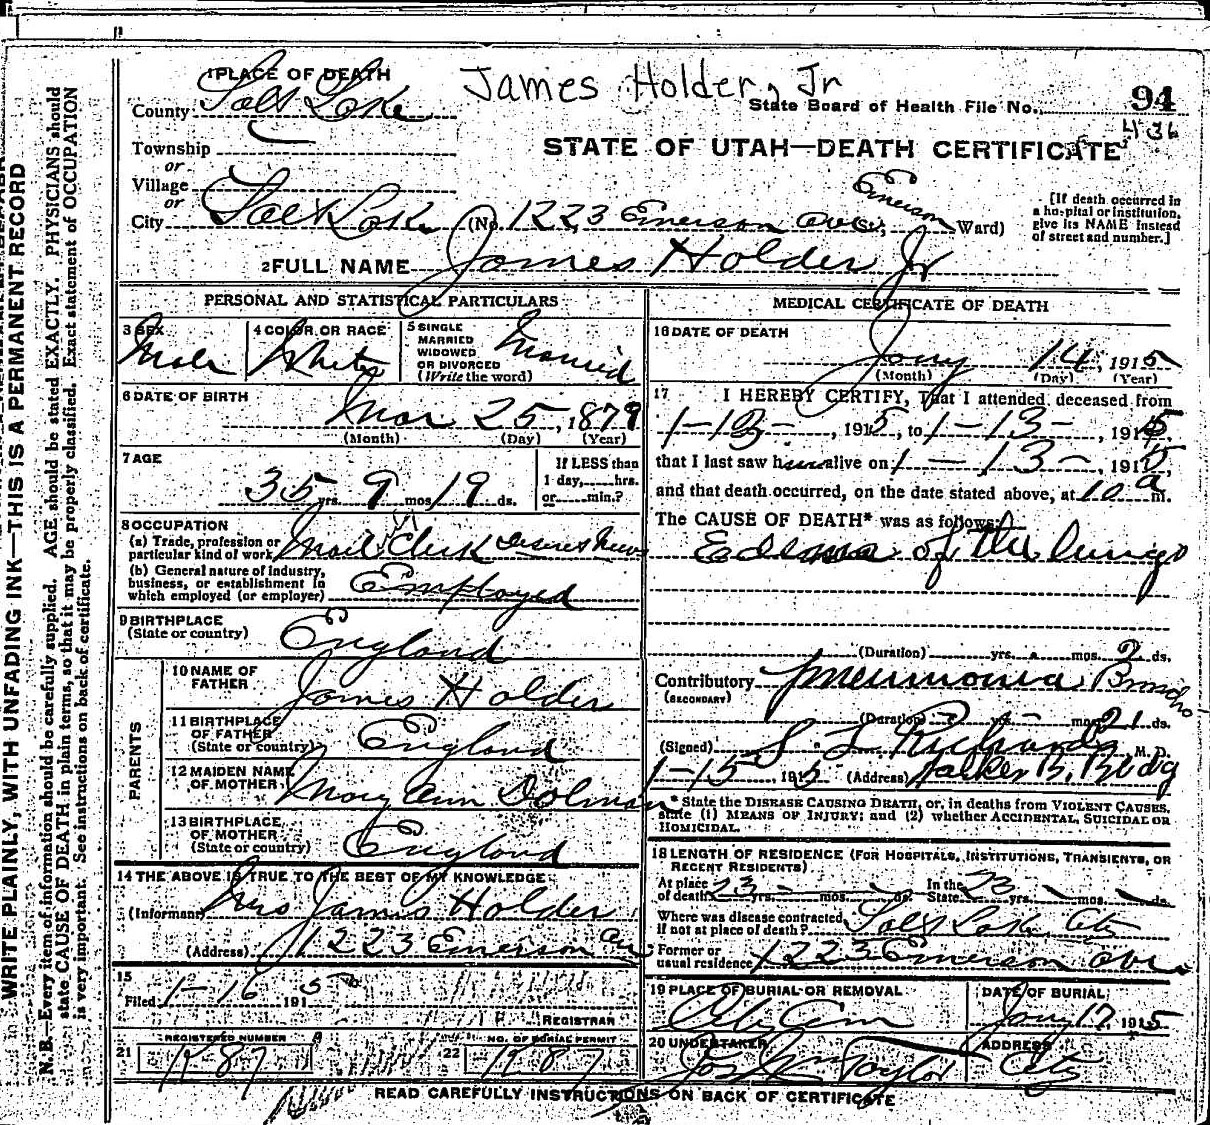 James Holder, Jr
1 PLACE OF DEATH
County Salt Lake
State Board of Health File No. 94
436
Township
or
Village
or
STATE OF UTAH—DEATH CERTIFICATE
City Salt Lake (No. 1223 Emerson Ave, Emerson Ward)
[If death occurred in a hospital or institution, give its NAME instead of street and number.]
2 FULL NAME James Holder Jr
PERSONAL AND STATISTICAL PARTICULARS
3 SEX Male
4 COLOR OR RACE White
5 SINGLE MARRIED WIDOWED OR DIVORCED (Write the word) Married
6 DATE OF BIRTH Mar 25, 1879
(Month) (Day) (Year)
7 AGE 35 yrs. 9 mos. 19 ds.
If LESS than 1 day, hrs. or min.?
8 OCCUPATION
(a) Trade, profession or particular kind of work Mail Clerk Deseret News
(b) General nature of industry, business, or establishment in which employed (or employer) Employed
9 BIRTHPLACE (State or country) England
PARENTS
10 NAME OF FATHER James Holder
11 BIRTHPLACE OF FATHER (State or country) England
12 MAIDEN NAME OF MOTHER Mary Ann Dolman
13 BIRTHPLACE OF MOTHER (State or country) England
14 THE ABOVE IS TRUE TO THE BEST OF MY KNOWLEDGE
(Informant) Mrs James Holder
(Address) 1223 Emerson Ave
15
Filed 1-16 1915
REGISTRAR
21 REGISTERED NUMBER
22 NO. OF BURIAL PERMIT
MEDICAL CERTIFICATE OF DEATH
16 DATE OF DEATH Jany 14, 1915
(Month) (Day) (Year)
17 I HEREBY CERTIFY, That I attended deceased from
1-13-, 1915, to 1-13-, 1915,
that I last saw him alive on 1-13-, 1915,
and that death occurred, on the date stated above, at 10 a m.
The CAUSE OF DEATH* was as follows:
Edema of the lungs
(Duration) yrs. mos. 2 ds.
Contributory (SECONDARY) Pneumonia Broncho
(Duration) yrs. mos. 21 ds.
(Signed) Richards M. D.
1-15, 1915 (Address) Walker B. Bldg
* State the DISEASE CAUSING DEATH, or, in deaths from VIOLENT CAUSES, state (1) MEANS OF INJURY; and (2) whether ACCIDENTAL, SUICIDAL OR HOMICIDAL.
18 LENGTH OF RESIDENCE (FOR HOSPITALS, INSTITUTIONS, TRANSIENTS, OR RECENT RESIDENTS)
At place of death 23 yrs. mos. ds. In the State 23 yrs. mos. ds.
Where was disease contracted, if not at place of death? Salt Lake City
Former or usual residence 1223 Emerson Ave
19 PLACE OF BURIAL OR REMOVAL City Cem
DATE OF BURIAL Jany 17, 1915
20 UNDERTAKER Taylor
ADDRESS City
READ CAREFULLY INSTRUCTIONS ON BACK OF CERTIFICATE
WRITE PLAINLY, WITH UNFADING INK—THIS IS A PERMANENT RECORD
N. B.—Every item of information should be carefully supplied. AGE should be stated EXACTLY. PHYSICIANS should
state CAUSE OF DEATH in plain terms, so that it may be properly classified. Exact statement of OCCUPATION
is very important. See instructions on back of certificate.